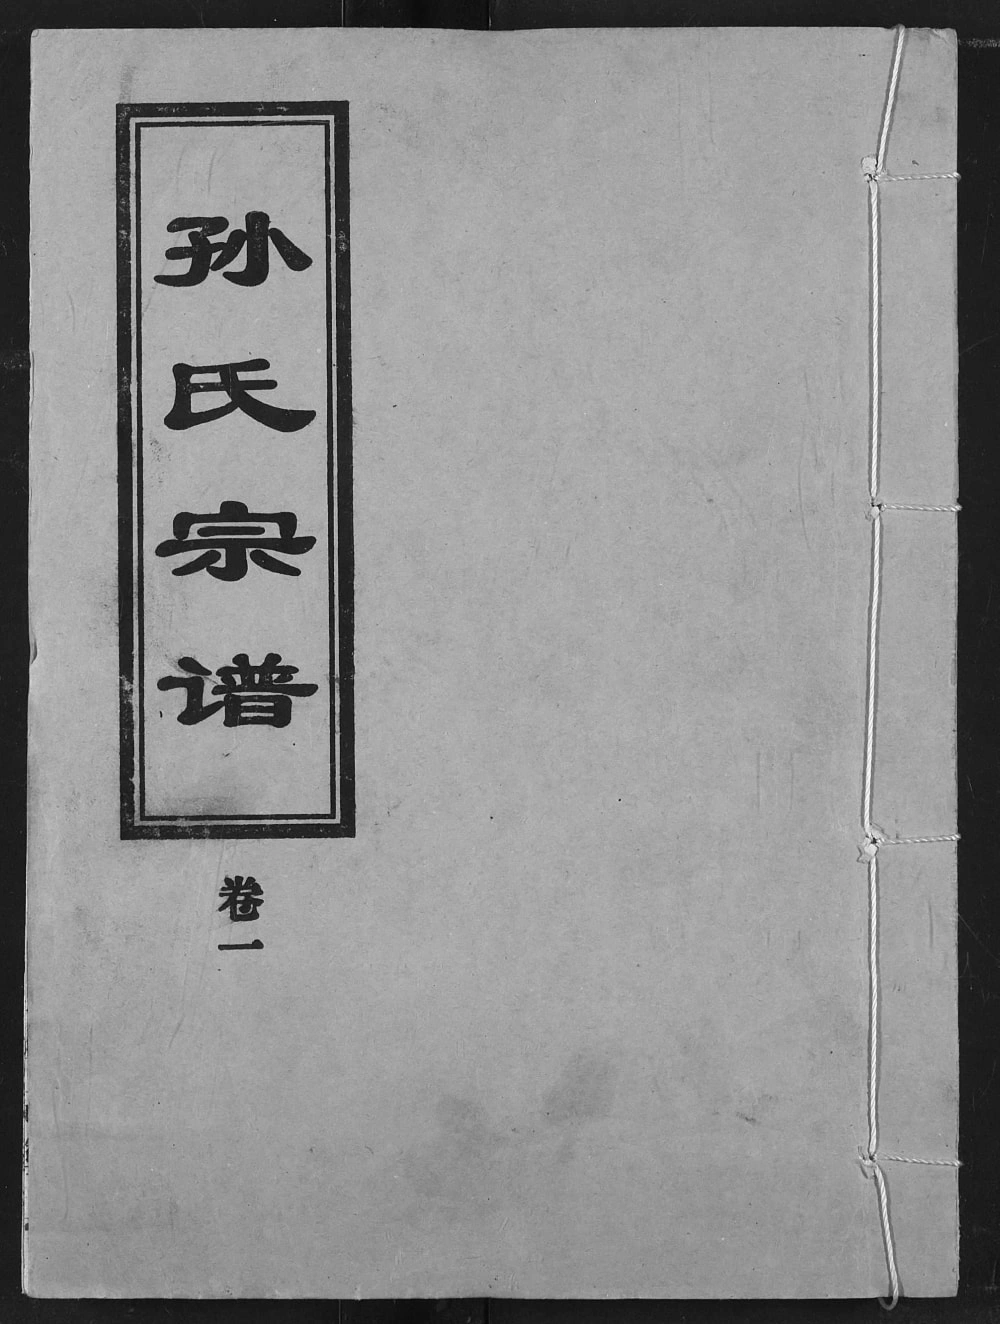 孙氏宗谱
卷一